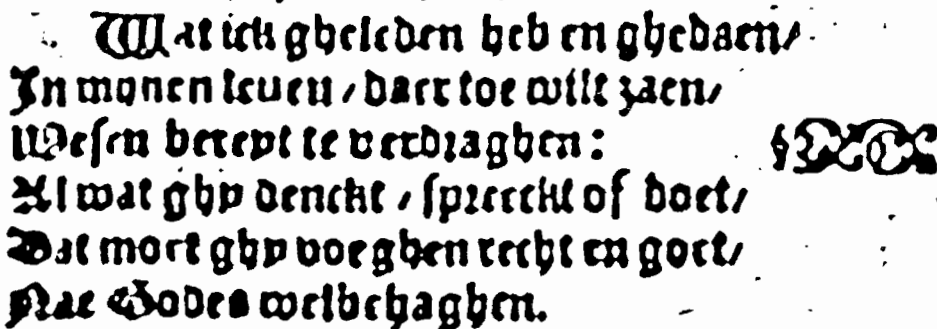 Wat ick gheleden heb en ghedaen/
In mynen leuen / daer toe wilt zaen/
Wesen bereyt te verdraghen:
Al wat ghy denckt / spreeckt of doet/
Dat moet ghy voeghen recht en goet/
Nae Godes welbehaghen.